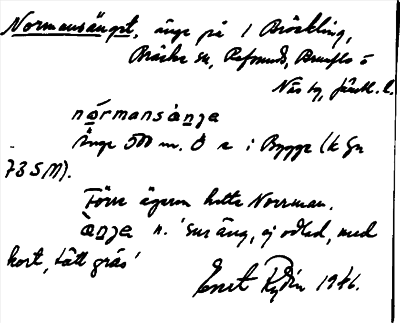 Normansänget, änge på 1 Bräckling,
Bräcke sn, Refsunds, Brunflo o
Näs tg, Jämtl. l.
nórmansàŋa
Änge 500 m. Ö  i Bygge (k
73 SM).
Förre ägaren hette Norrman.
àŋa n. 'sur äng, ej odlad, med
kort, tätt gräs'
Ernst Rydin 1946.